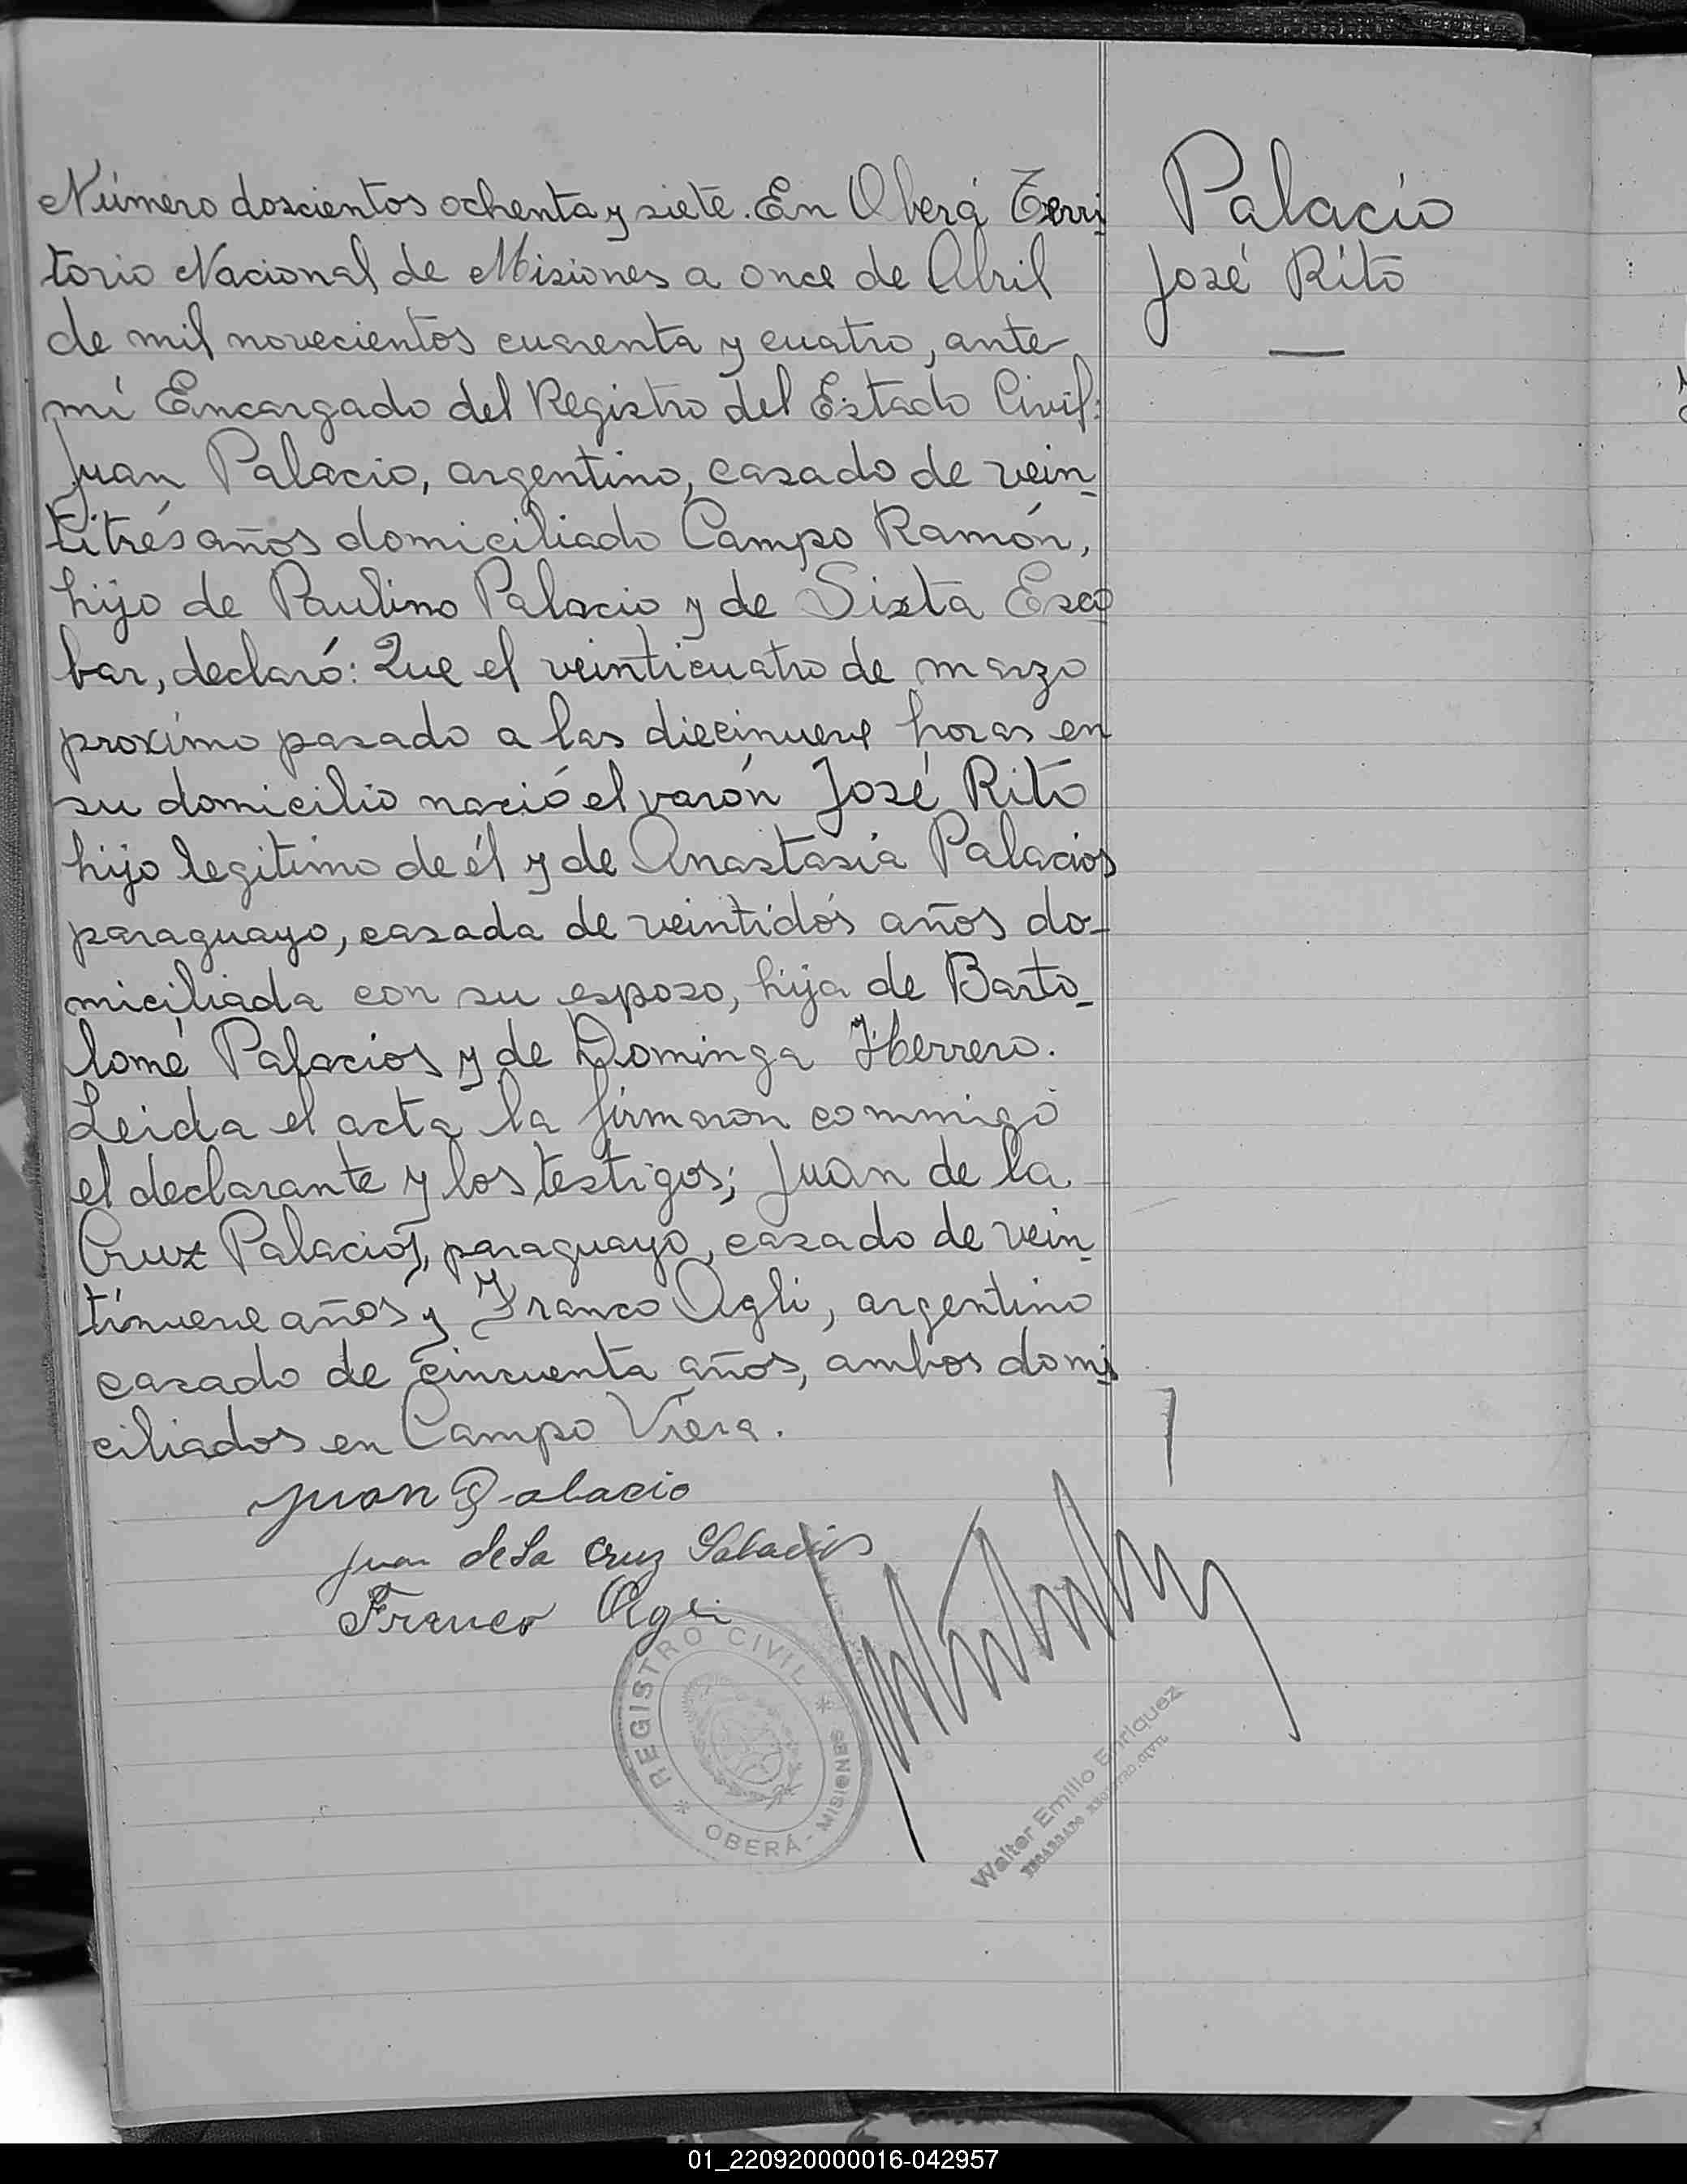 Número doscientos ochenta y siete. En Oberá Terri
torio Nacional de Misiones a once de Abril
de mil novecientos cuarenta y cuatro, ante
mí Encargado del Registro del Estado Civil:
Juan Palacio, argentino, casado de vein-
titrés años domiciliado Campo Ramón,
hijo de Paulino Palacio y de Sixta Esco
bar, declaró: Que el veinticuatro de marzo
proximo pasado a las diecinueve horas en
su domicilio nació el varón José Rito
hijo legitimo de él y de Anastasia Palacios
paraguayo, casada de veintidós años do-
miciliada con su esposo, hija de Barto-
lomé Palacios y de Dominga Herrero.
Leida el acta la firmaron conmigo
el declarante y los testigos; Juan de la
Cruz Palacios, paraguayo, casado de vein-
tinueve años y Franco Agli, argentino
casado de cincuenta años, ambos domi
ciliados en Campo Viera.
Juan Palacio
Juan de la Cruz Palacios
Franco Agli
Palacio
José Rito
REGISTRO CIVIL
OBERÁ - MISIONES
Walter Emilio Enriquez
ENCARGADO REGISTRO CIVIL
01_220920000016-042957